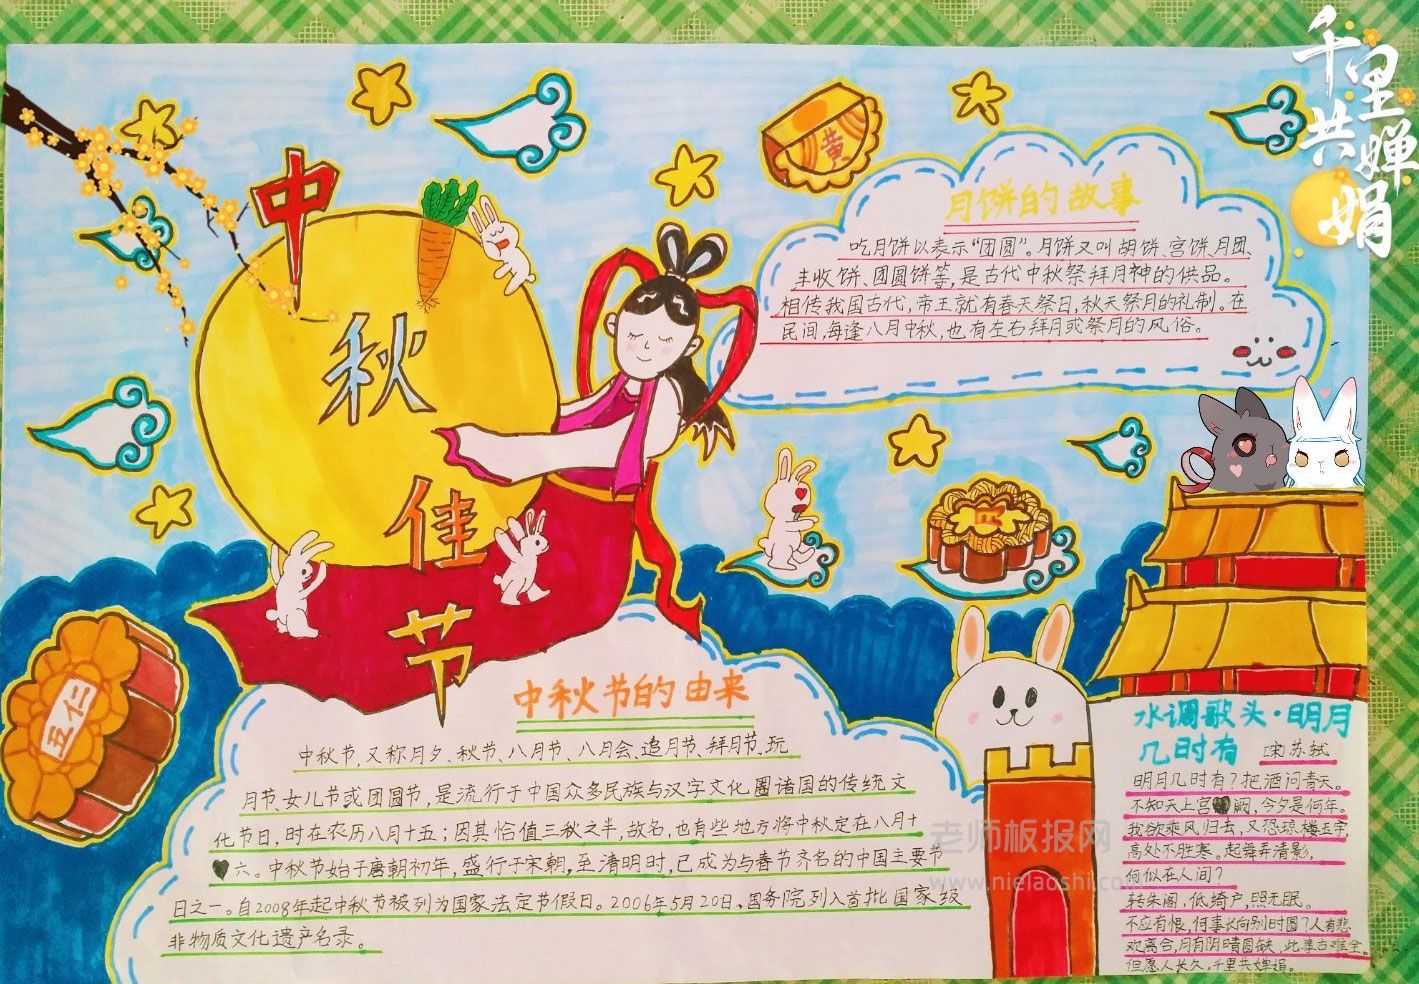 千里共婵娟
中秋佳节
黄
月饼的故事
吃月饼以表示“团圆”。月饼又叫胡饼、宫饼、月团、
丰收饼、团圆饼等,是古代中秋祭拜月神的供品。
相传我国古代,帝王就有春天祭日,秋天祭月的礼制。在
民间,每逢八月中秋,也有左右拜月或祭月的风俗。
五仁
中秋节的由来
中秋节,又称月夕、秋节、八月节、八月会、追月节、拜月节、玩
月节、女儿节或团圆节,是流行于中国众多民族与汉字文化圈诸国的传统文
化节日,时在农历八月十五;因其恰值三秋之半,故名,也有些地方将中秋定在八月十
六。中秋节始于唐朝初年,盛行于宋朝,至清明时,已成为与春节齐名的中国主要节
日之一。自2008年起中秋节被列为国家法定节假日。2006年5月20日,国务院列入首批国家级
非物质文化遗产名录。
水调歌头·明月
几时有 宋苏轼
明月几时有?把酒问青天。
不知天上宫阙,今夕是何年。
我欲乘风归去,又恐琼楼玉宇,
高处不胜寒。起舞弄清影,
何似在人间?
转朱阁,低绮户,照无眠。
不应有恨,何事长向别时圆?人有悲
欢离合,月有阴晴圆缺,此事古难全。
但愿人长久,千里共婵娟。
老师板报网
www.nielaoshi.com